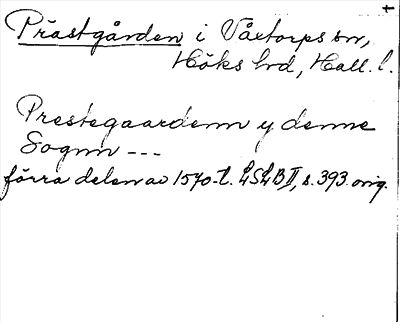 Prästgården i Våxtorps sn,
Höks hd, Hall. l.
Prestegaardenn y denne
Sognn ---
förra delen av 1570-t. LSLB II, s. 393. orig.